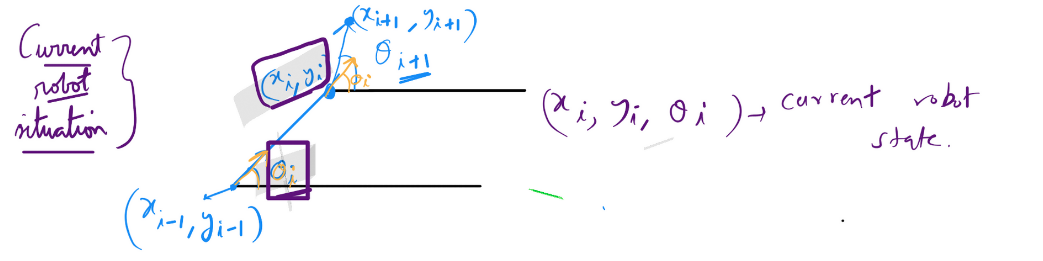 Current
robot
situation
(x_{i+1}, y_{i+1})
θ_{i+1}
(x_i, y_i
θ_i
θ_i
(x_{i-1}, y_{i-1})
(x_i, y_i, θ_i) → current robot
state.